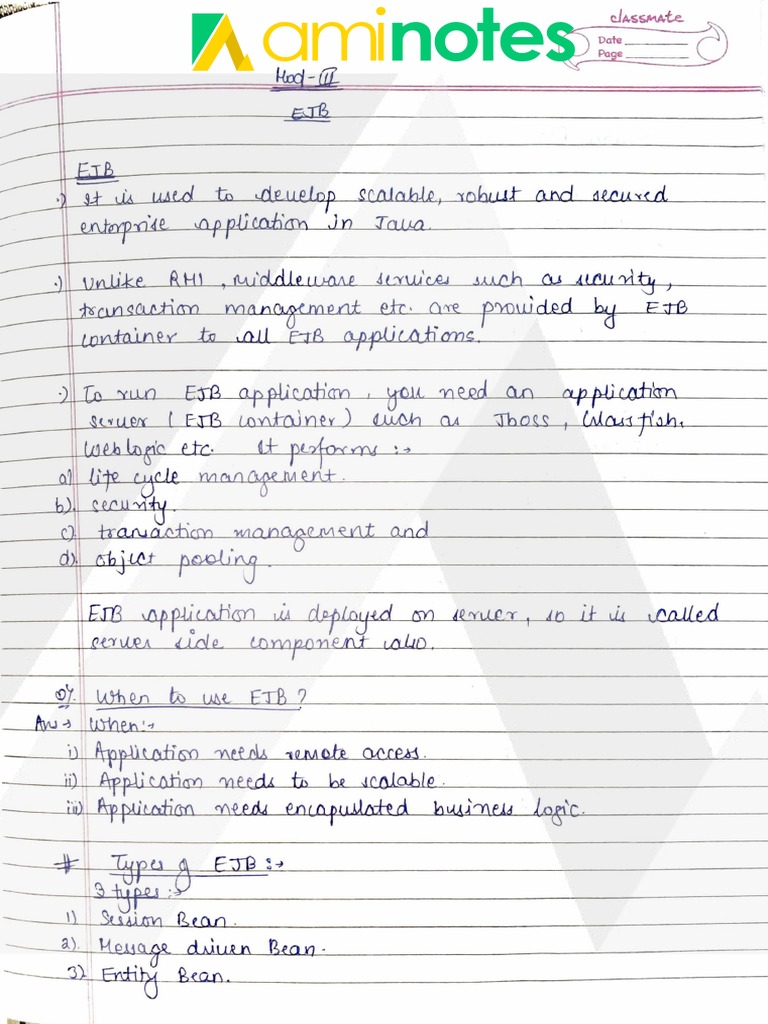 aminotes
classmate
Date
Page
Mod-III
EJB
EJB
·) It is used to develop scalable, robust and secured
enterprise application in Java.
·) Unlike RMI, middleware services such as security,
transaction management etc. are provided by EJB
container to all EJB applications.
·) To run EJB application, you need an application
server (EJB container) such as Jboss, Glassfish,
Weblogic etc. It performs :→
a) life cycle management.
b). security.
c). transaction management and
d). object pooling.
EJB application is deployed on server, so it is called
server side component also.
Q/. When to use EJB?
Ans → When:→
i) Application needs remote access.
ii) Application needs to be scalable.
iii) Application needs encapuslated business logic.
# Types of EJB:→
3 types:→
1) Session Bean.
2). Message driven Bean.
3) Entity Bean.